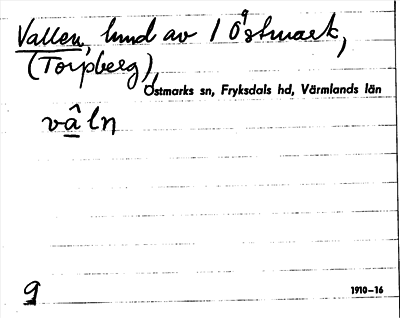 Vallen, lund av 1 Östmark,
(Torpberg),
Östmarks sn, Fryksdals hd, Värmlands län
vâln
g
1910–16